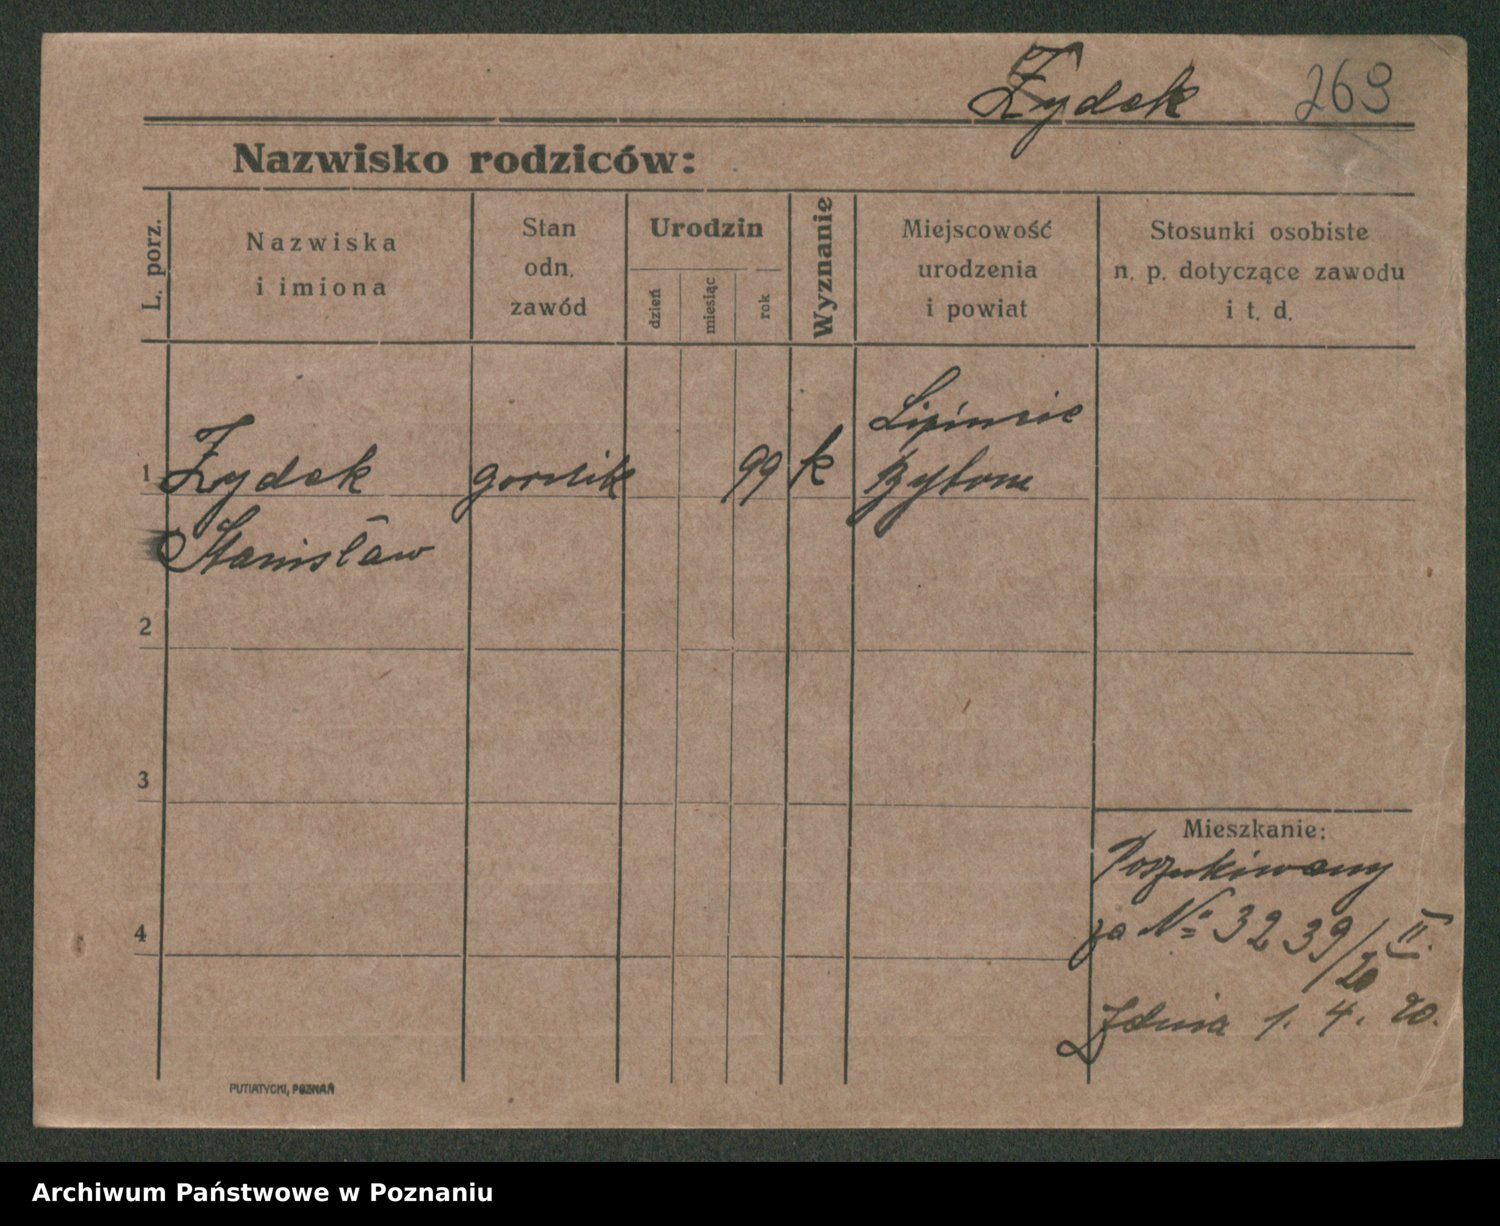 Żydek 269
Nazwisko rodziców:
L. porz.
Nazwiska
i imiona
Stan
odn.
zawód
Urodzin
dzień
miesiąc
rok
Wyznanie
Miejscowość
urodzenia
i powiat
Stosunki osobiste
n. p. dotyczące zawodu
i t. d.
Lipinie
1 Żydek 99 k Bytom
Stanisław
2
3
4
Mieszkanie:
Poszukiwany
za № 3239/20 II.
Zdnia 1. 4. 20.
PUTIATYCKI, POZNAŃ
Archiwum Państwowe w Poznaniu